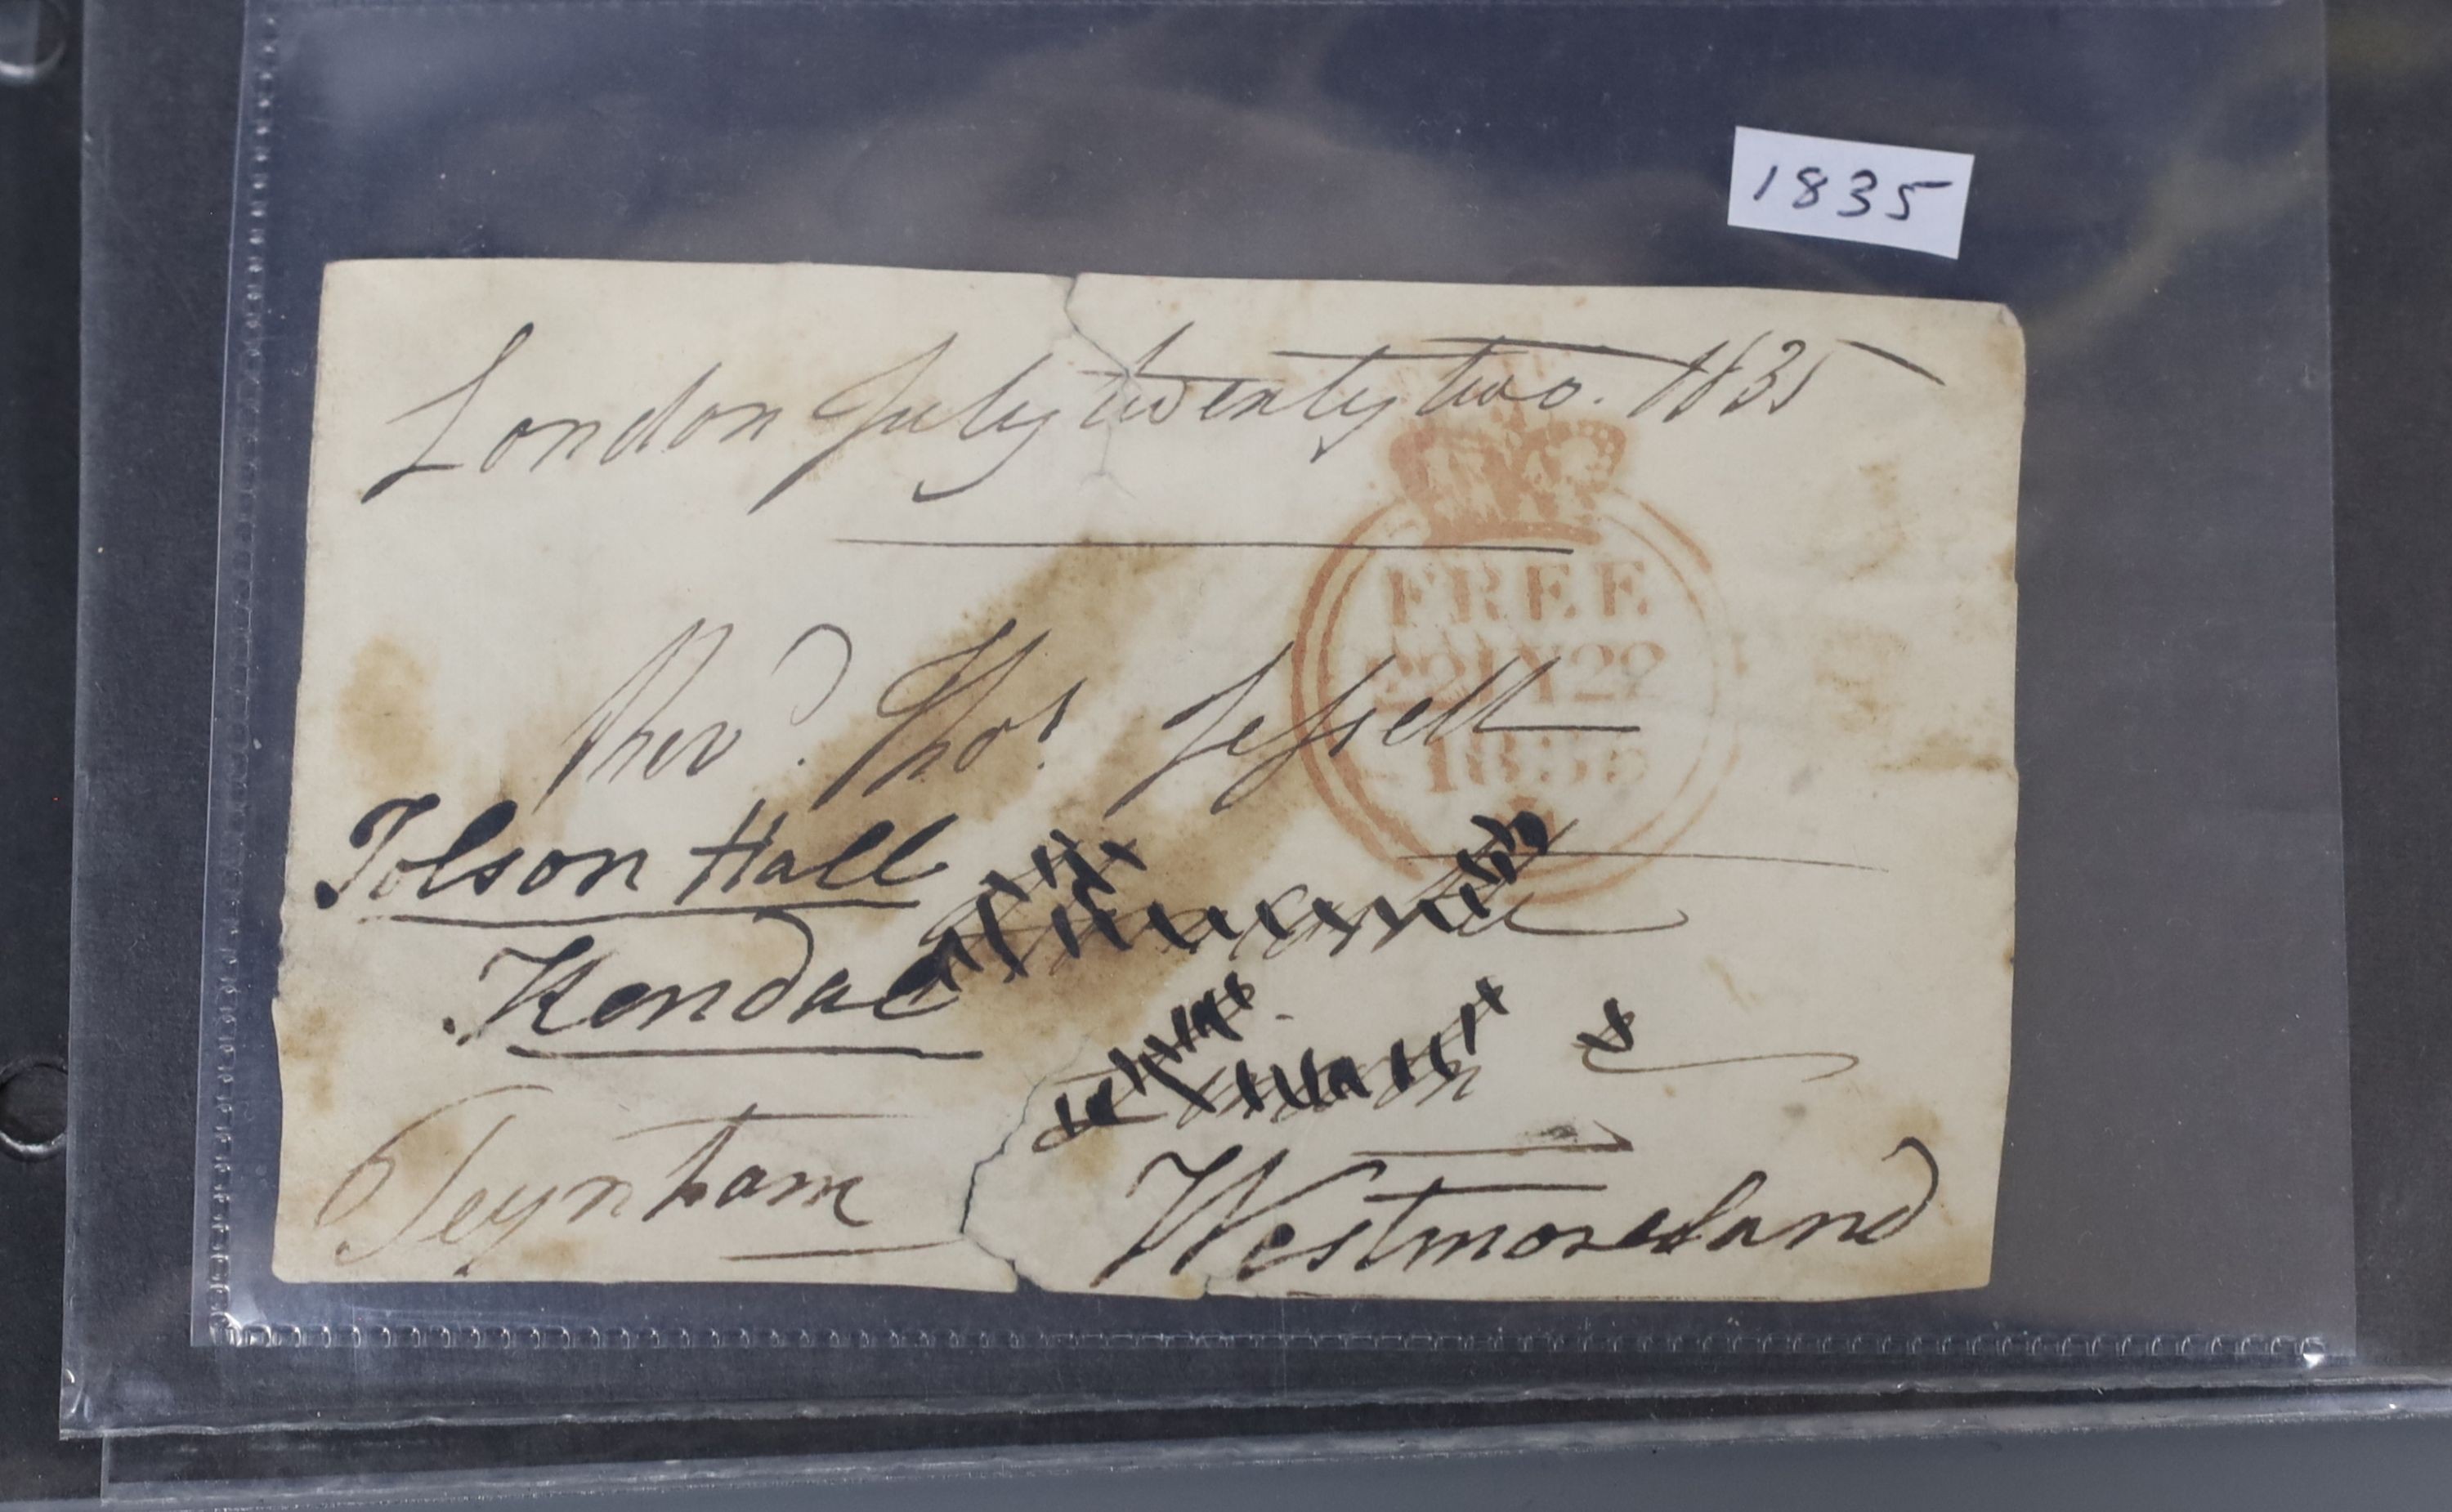 1835
London July twenty two. 1835
FREE
22 JY 22
1835
Revd. Thos Jessett
Tolson Hall
Kendal
Teynham
Westmoreland